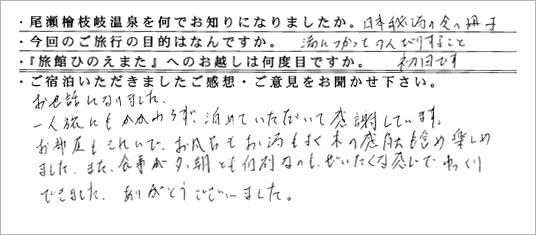 ・尾瀬檜枝岐温泉を何でお知りになりましたか。日本秘湯の会の冊子
・今回のご旅行の目的はなんですか。 湯につかってのんびりすること
・『旅館ひのえまた』へのお越しは何度目ですか。 初回です
・ご宿泊いただきましたご感想・ご意見をお聞かせ下さい。
お世話になりました。
一人旅にもかかわらず、泊めていただいて感謝しています。
お部屋もきれいで、お風呂もお湯もよく木の感触も含め楽しめ
ました。また、食事が夕、朝とも個別なのも、ぜいたくな感じで、ゆっくり
できました。ありがとうございました。